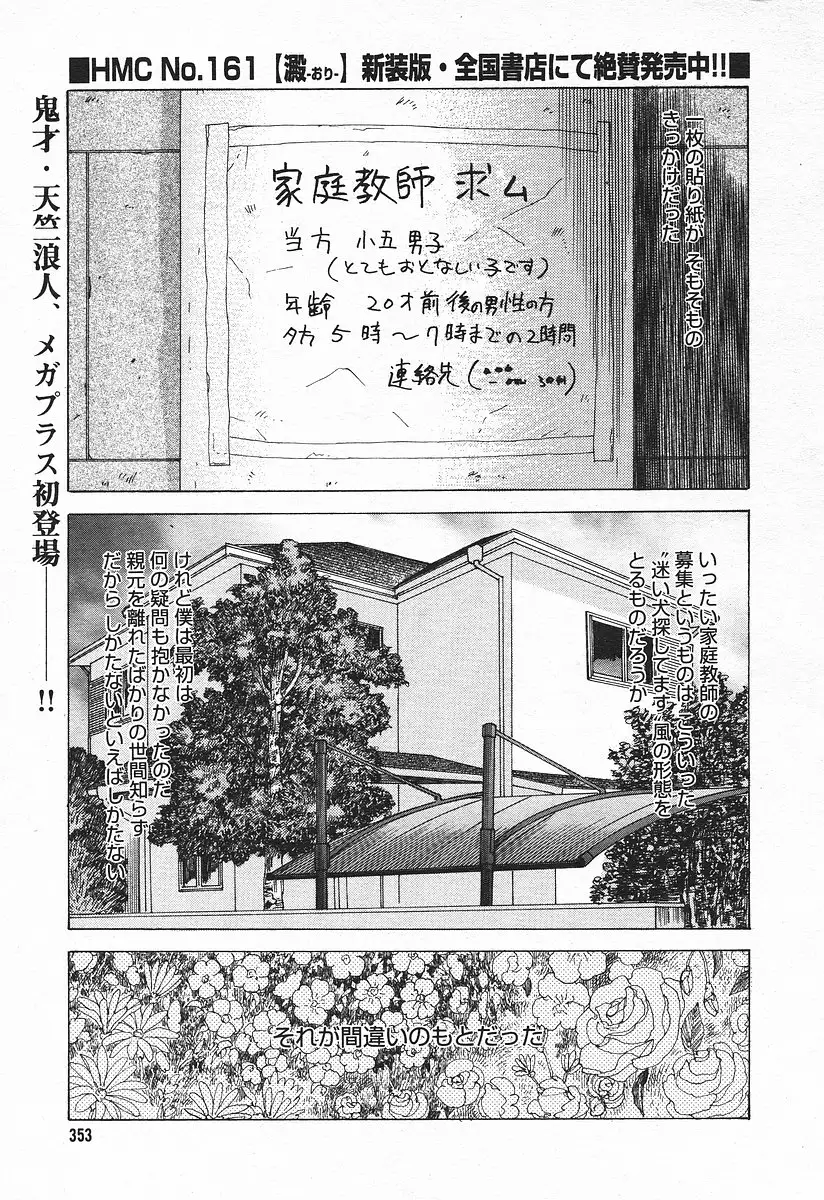 ■HMC No.161【澱-おり-】新装版・全国書店にて絶賛発売中!!■
鬼才・天竺浪人、メガプラス初登場――!!
一枚の貼り紙が そもそもの
きっかけだった
家庭教師 求ム
当方 小五男子
(とてもおとなしい子です)
年齢 20才前後の男性の方
夕方 5時〜7時までの2時間
連絡先(
いったい家庭教師の
募集というものは こういった
〝迷い犬探してます〟風の形態を
とるものだろうか
けれど僕は最初は
何の疑問も抱かなかったのだ
親元を離れたばかりの世間知らず
だから しかたないといえばしかたない
それが間違いのもとだった
353